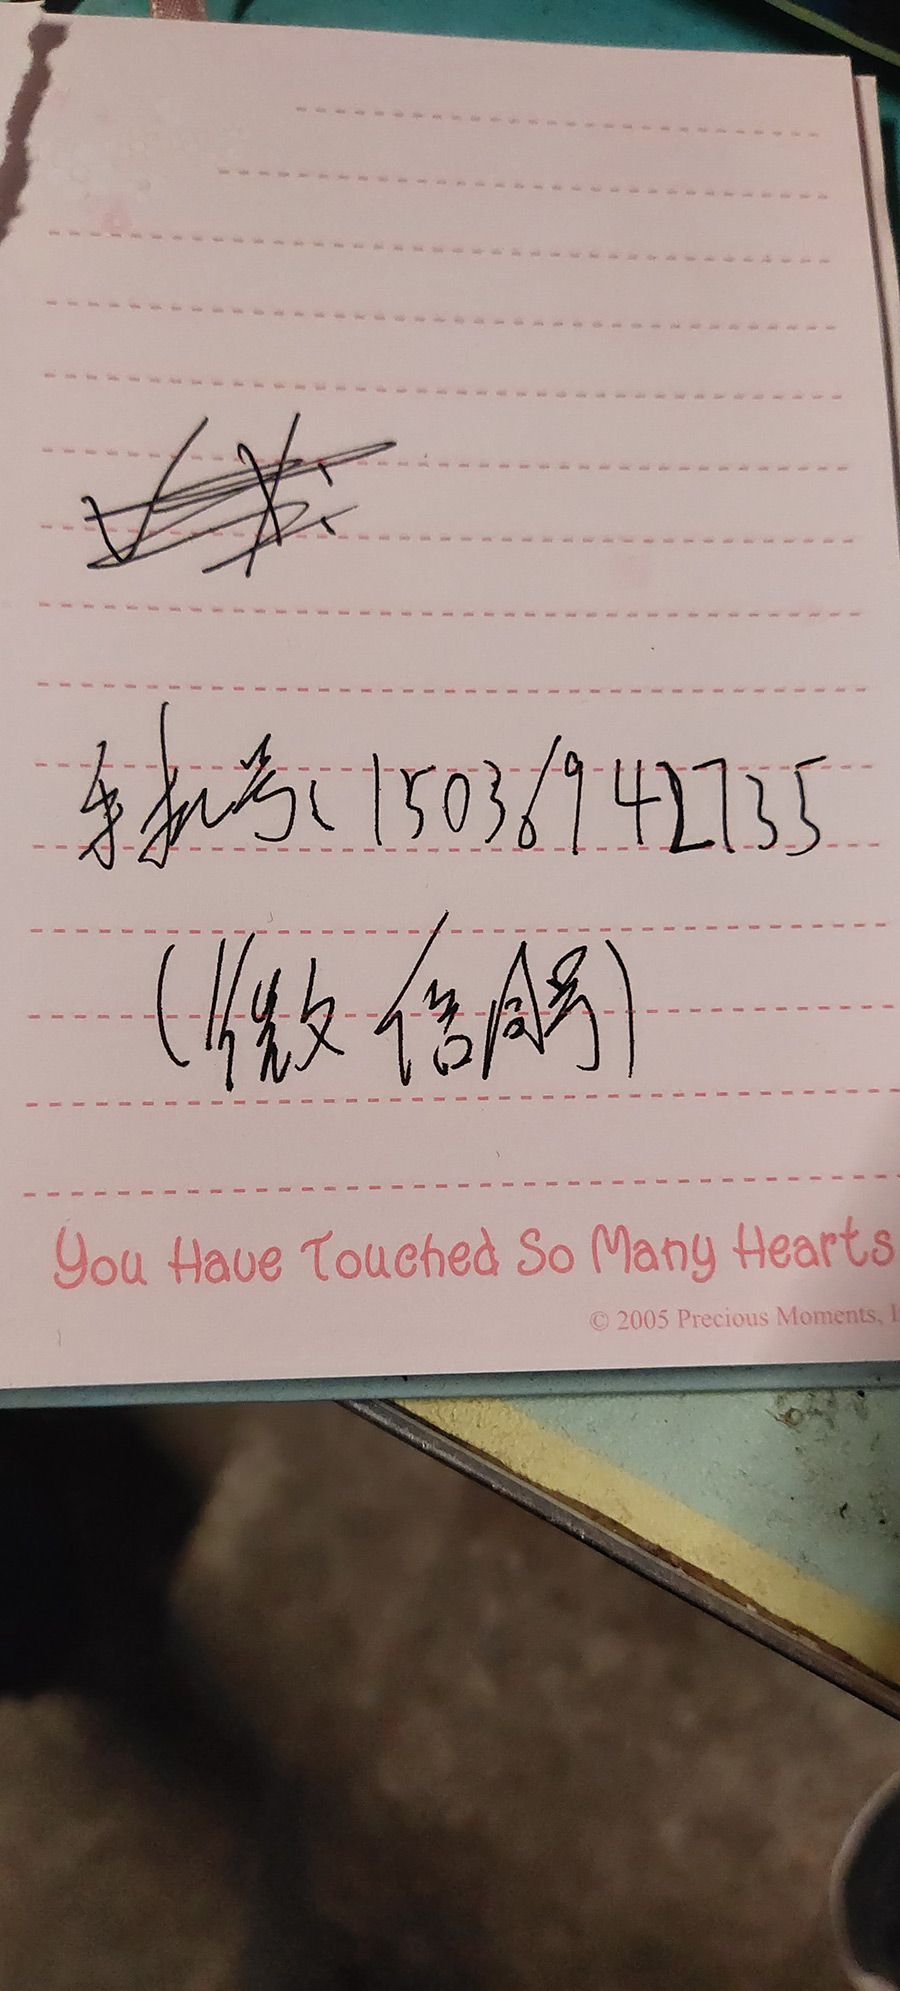 手机号: 15036942735
(微信同号)
You Have Touched So Many Hearts
© 2005 Precious Moments, I